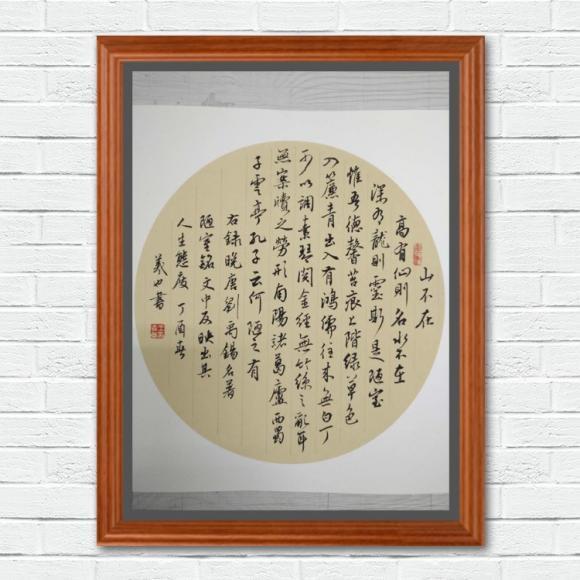 山不在
高有仙則名水不在
深有龍則靈斯是陋室
惟吾德馨苔痕上階緑草色
入簾青出入有鴻儒往来無白丁
可以調素琴閱金經無竹絲之亂耳
無案牘之勞形南陽諸葛廬西蜀
子雲亭孔子云何陋之有
右録晚唐劉禹錫名著
陋室銘文中反映出其
人生態度丁酉春
書